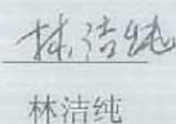 林洁纯
林洁纯